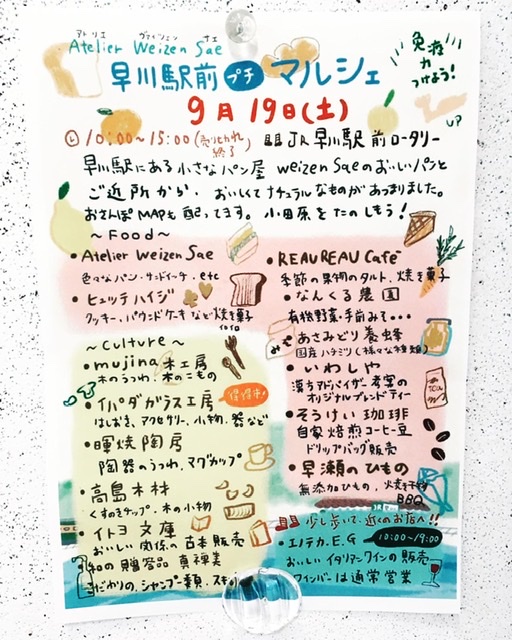 アトリエ ヴァイツェン ザエ
Atelier Weizen Sae
早川駅前 プチ マルシェ
免疫力
つけよう!
UP
9月19日(土)
10:00~15:00 (売り切れ終了) JR早川駅前ロータリー
早川駅にある小さなパン屋 weizen Saeのおいしいパンと
ご近所から、おいしくてナチュラルなものがあつまりました。
おさんぽMAPも配ってます。小田原をたのしもう!
~Food~
・Atelier Weizen Sae
色々なパン・サンドイッチ.etc
・ヒュッテハイジ
クッキー、パウンドケーキなど焼き菓子
・REAUREAU Cafe
季節の果物のタルト、焼き菓子
・なんくる農園
有機野菜・手前みそ・・・
・あさみどり養蜂
国産ハチミツ(様々な種類)
・いわしや
漢方アドバイザー考案の
オリジナルブレンドティー
・そうけい珈琲
自家焙煎コーヒー豆
ドリップバッグ販売
・早瀬のひもの
無添加ひもの、焼き
BBQ
~Culture~
・mujina木工房
木のうつわ、木のこもの
・イパダガラス工房
はしおき、アクセサリー、小物、器など
・暉焼陶房
陶器のうつわ、マグカップ
・高島木材
くすのきチップ、木の小物
・イトヨ文庫
おいしい関係の古本販売
和の贈答品 真禅美
こだわりの、シャンプー類、スキ
少し歩いて、近くのお店へ!!
・エノテカ.E.G 10:00~19:00
おいしいイタリアンワインの販売
ワインバーは通常営業